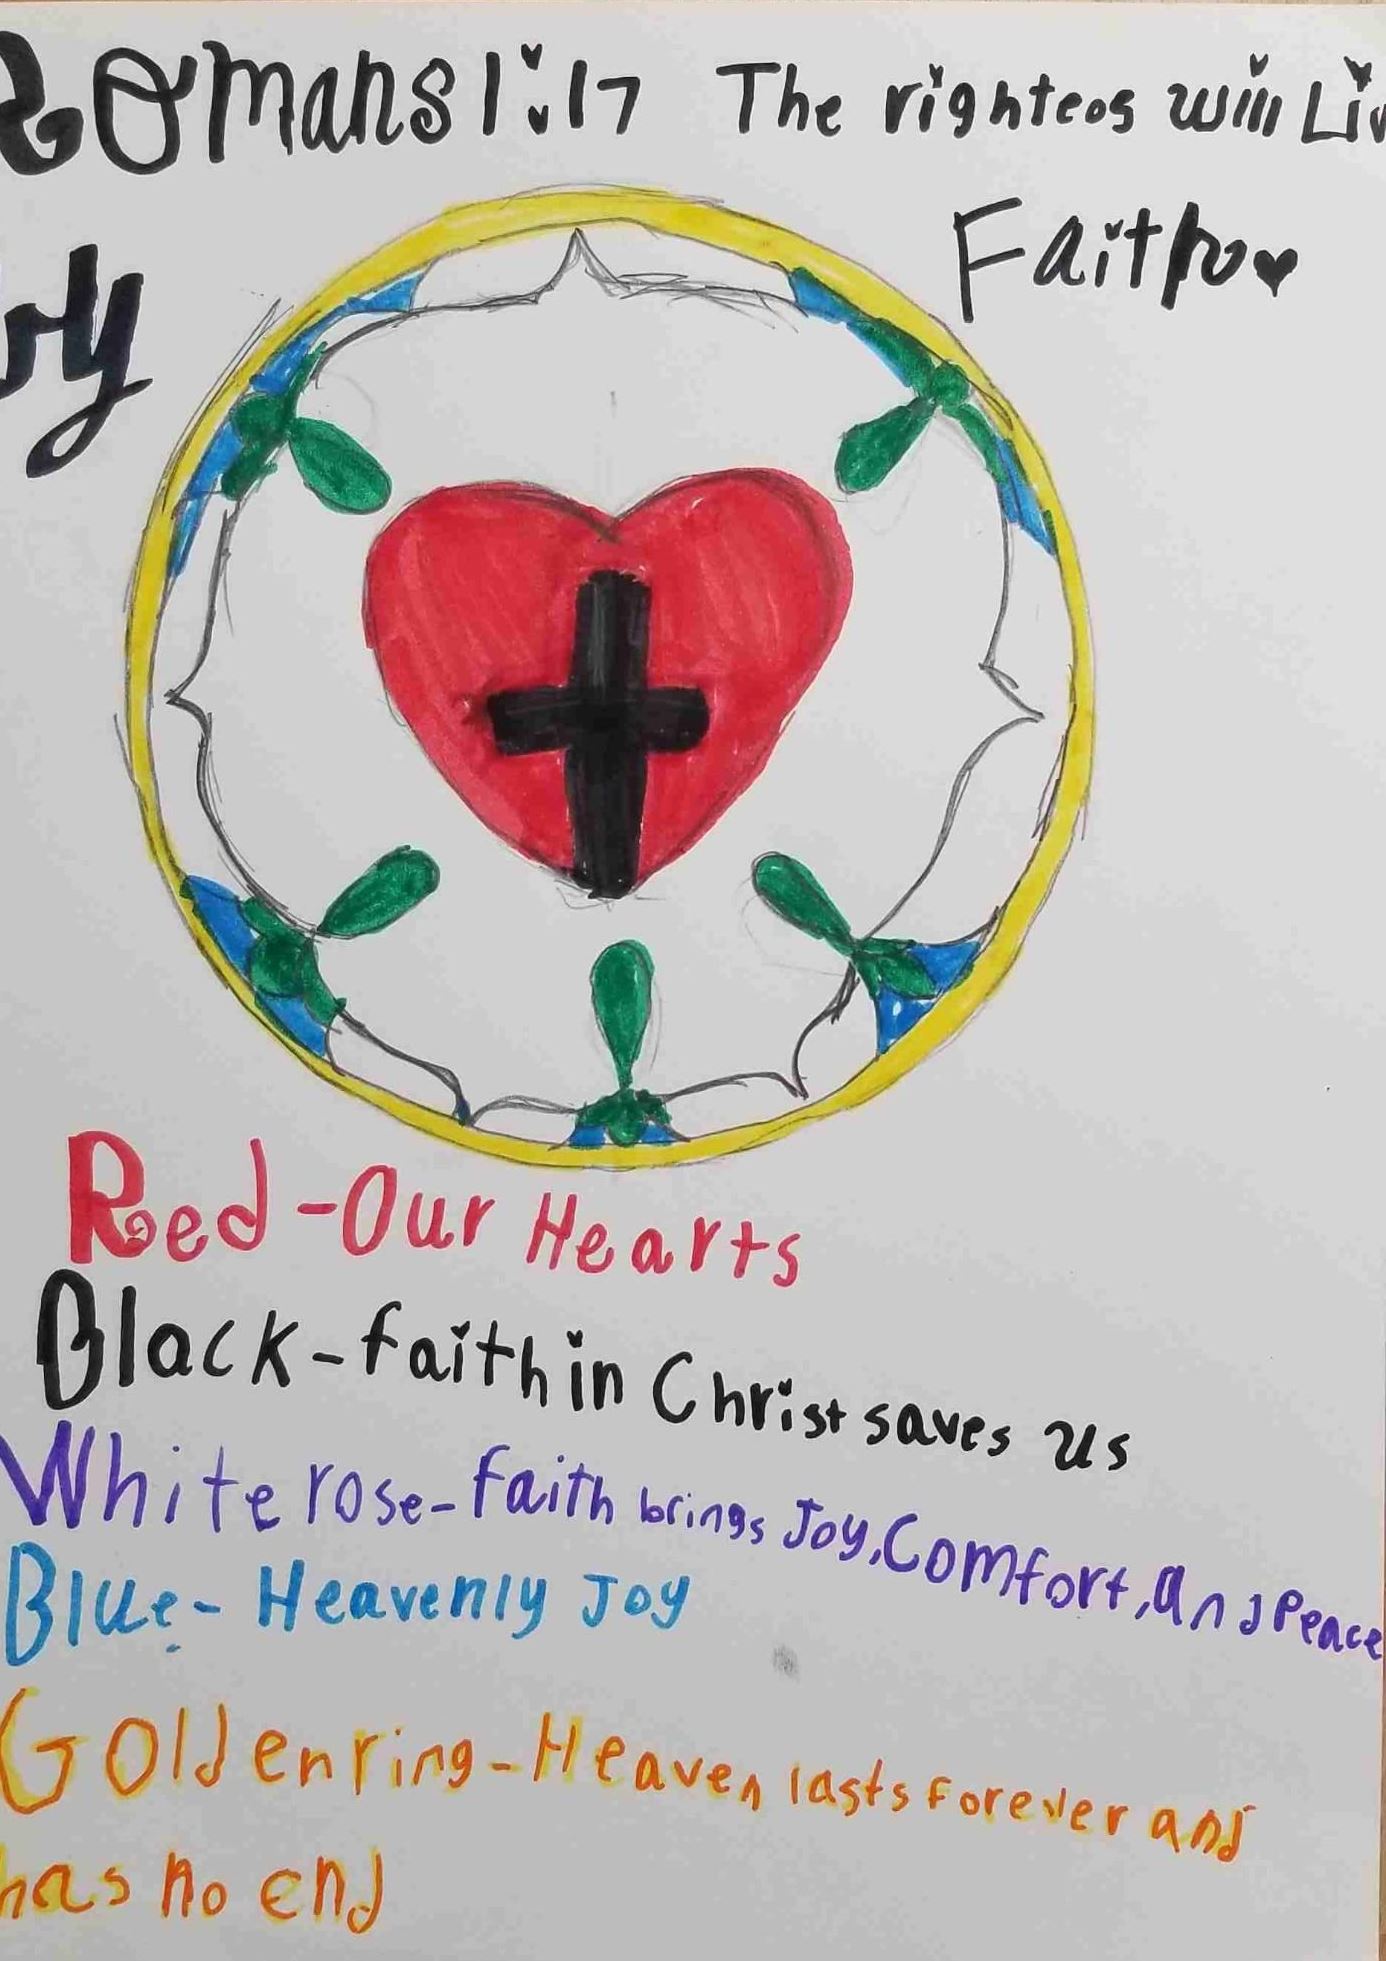 Romans 1:17 The righteos will Liv
by Faith
Red - Our Hearts
Black - faith in Christ saves us
White rose - faith brings Joy, Comfort, and Peace
Blue - Heavenly Joy
Golden ring - Heaven lasts forever and
has no end